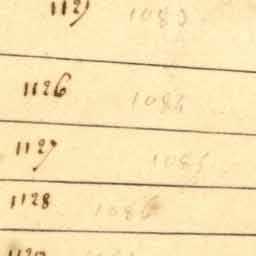 1125 1083
1126 1084
1127 1085
1128 1086
1129